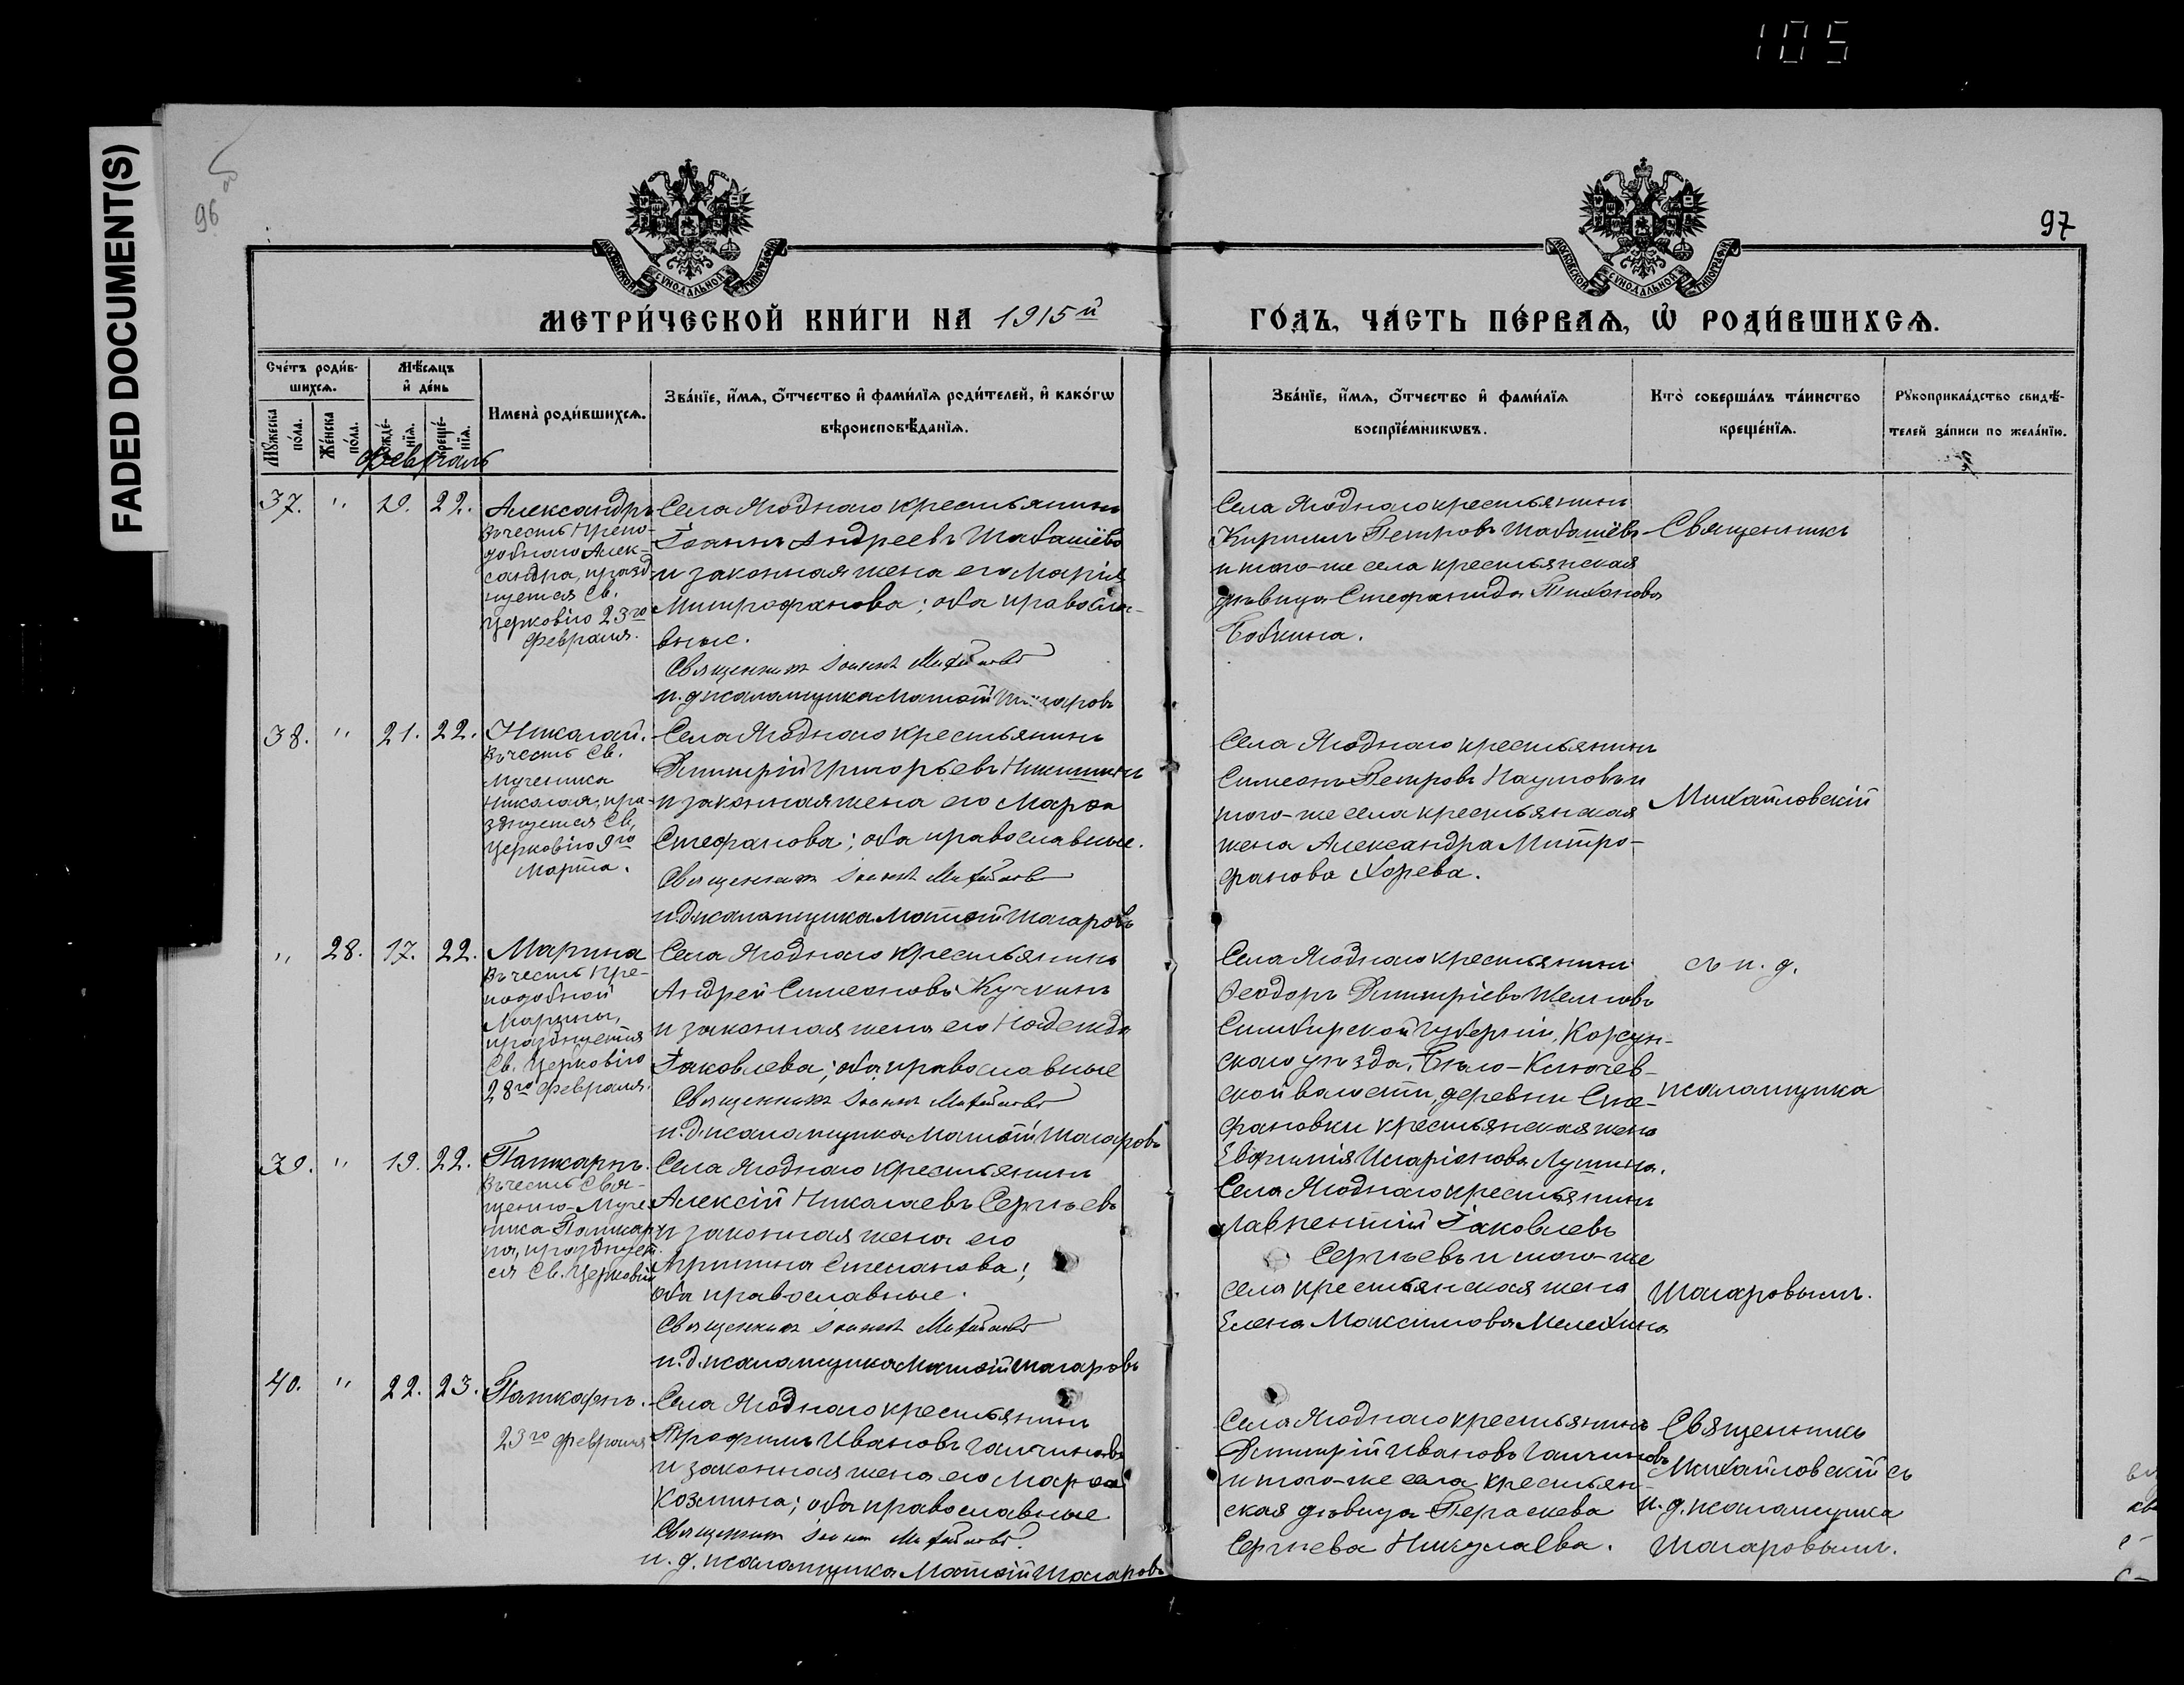 105
FADED DOCUMENT(S)
96 об
97
МОСКОВСКОЙ СѴНОДАЛЬНОЙ ТИПОГРАФІИ
МОСКОВСКОЙ СѴНОДАЛЬНОЙ ТИПОГРАФІИ
МЕТРИ́ЧЕСКОЙ КНИ́ГИ НА 1915й
ГО́ДЪ, ЧА́СТЬ ПЕ́РВАѦ, Ѡ҆ РОДИ́ВШИХСѦ.
Сче́тъ роди́в-
шихсѧ.
Мѣ́сѧцъ
и҆ де́нь
Мꙋ́жеска по́ла.
Же́нска по́ла.
рожде́-
нїѧ.
креще́-
нїѧ.
Имена̀ роди́вшихсѧ.
Зва́нїе, и҆́мѧ, ѻ҆́тчество и҆ фами́лїѧ роди́телей, и҆ како́гѡ
вѣроисповѣ́данїѧ.
Зва́нїе, и҆́мѧ, ѻ҆́тчество и҆ фами́лїѧ
воспрїе́мникѡвъ.
Кто̀ соверша́лъ та́инство
креще́нїѧ.
Рꙋкоприкла́дство свидѣ́-
телей за́писи по жела́нїю.
Февраль
37. " 19. 22. Александръ
Въ честь Препо-
добнаго Алек-
сандра, празд-
нуемая Св.
Церковію 23го
февраля.
Села Ягоднаго крестьянинъ
Іоаннъ Андреевъ Шабашёвъ
и законная жена его Марія
Митрофанова; оба правосла-
вные.
Священникъ Іоаннъ Михайловскій
и. д. псаломщика Матѳій Шагаровъ
Села Ягоднаго крестьянинъ
Кириллъ Петровъ Шабашёвъ
и того-же села крестьянская
дѣвица Стефанида Тиханова
Бобкина.
Священникъ
38. " 21. 22. Николай.
Въ честь Св.
Мученика
Николая, пра-
зднуемая Св.
Церковію 9го
Марта.
Села Ягоднаго крестьянинъ
Димитрій Григорьевъ Никишинъ
и законная жена его Марѳа
Стефанова; оба православные.
Священникъ Іоаннъ Михайловскій
и. д. псаломщика Матѳій Шагаровъ
Села Ягоднаго крестьянинъ
Симеонъ Петровъ Наумовъ и
того-же села крестьянская
жена Александра Митро-
фанова Хорева.
Михайловскій
" 28. 17. 22. Марина
Въ честь Пре-
подобной
Марины,
празднуемая
Св. Церковію
28го февраля.
Села Ягоднаго крестьянинъ
Андрей Симеоновъ Кучкинъ
и законная жена его Надежда
Іаковлева; оба православные
Священникъ Іоаннъ Михайловскій
и. д. псаломщика Матѳій Шагаровъ
Села Ягоднаго крестьянинъ
Ѳеодоръ Димитріевъ
Симбирской губерніи, Корсун-
скаго уѣзда, Бѣло-Ключев-
ской волости, деревни Сте-
фановки крестьянская жена
Евфимія Иларіонова
съ и. д.
псаломщика
39. " 19. 22. Поликарпъ.
Въ честь Свя-
щенно-Муче-
ника Поликар-
па, празднует-
ся Св. Церковію
Села Ягоднаго крестьянинъ
Алексій Николаевъ Сергѣевъ
и законная жена его
Агрипина Степанова;
оба православные.
Священникъ Іоаннъ Михайловскій
и. д. псаломщика Матѳій Шагаровъ
Села Ягоднаго крестьянинъ
Лаврентій Іаковлевъ
Сергѣевъ и того-же
села крестьянская жена
Елена Максимова Мелехина
Шагаровымъ.
40. " 22. 23. Поликарпъ.
23го февраля
Села Ягоднаго крестьянинъ
Трофимъ Ивановъ
и законная жена его Марѳа
Козмина; оба православные
Священникъ Іоаннъ Михайловскій
и. д. псаломщика Матѳій Шагаровъ
Села Ягоднаго крестьянинъ
Димитрій Ивановъ
и того-же села крестьян-
ская дѣвица Параскева
Сергѣева Николаева.
Священникъ
Михайловскій съ
и. д. псаломщика
Шагаровымъ.